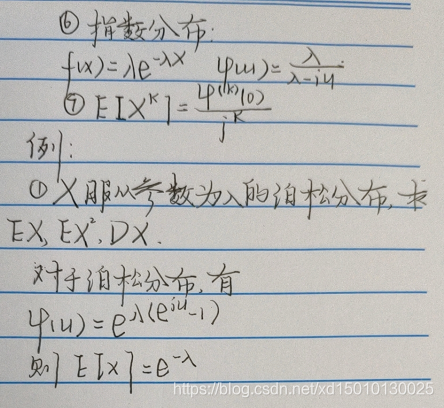 ⑥ 指数分布:
f(x)=λe^{-λx} φ(u)=λ/(λ-ju)
⑦ E[X^k]=φ^{(k)}(0)/j^k
例:
① X服从参数为λ的泊松分布,求
EX, EX², DX.
对于泊松分布,有
φ(u)=e^{λ(e^{ju}-1)}
则 E[X]=e^{-λ}
https://blog.csdn.net/xd15010130025